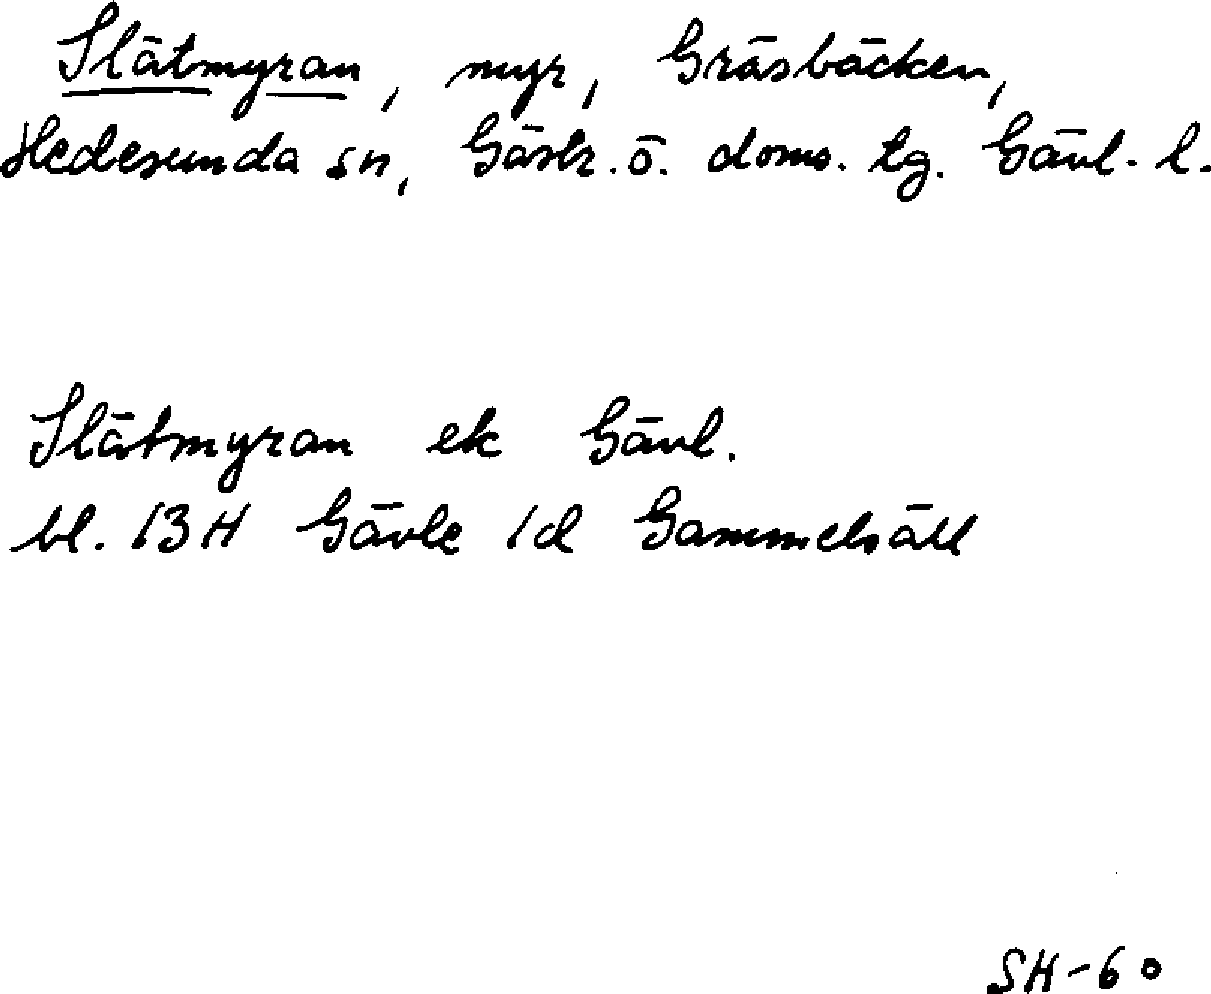 Slätmyran, myr, Gräsbäcken,
Hedesunda sn, Gästr. ö. doms. tg. Gävl. l.
Slätmyran ek Gävl.
bl. 13H Gävle 1d Gammelsäll
SH-60